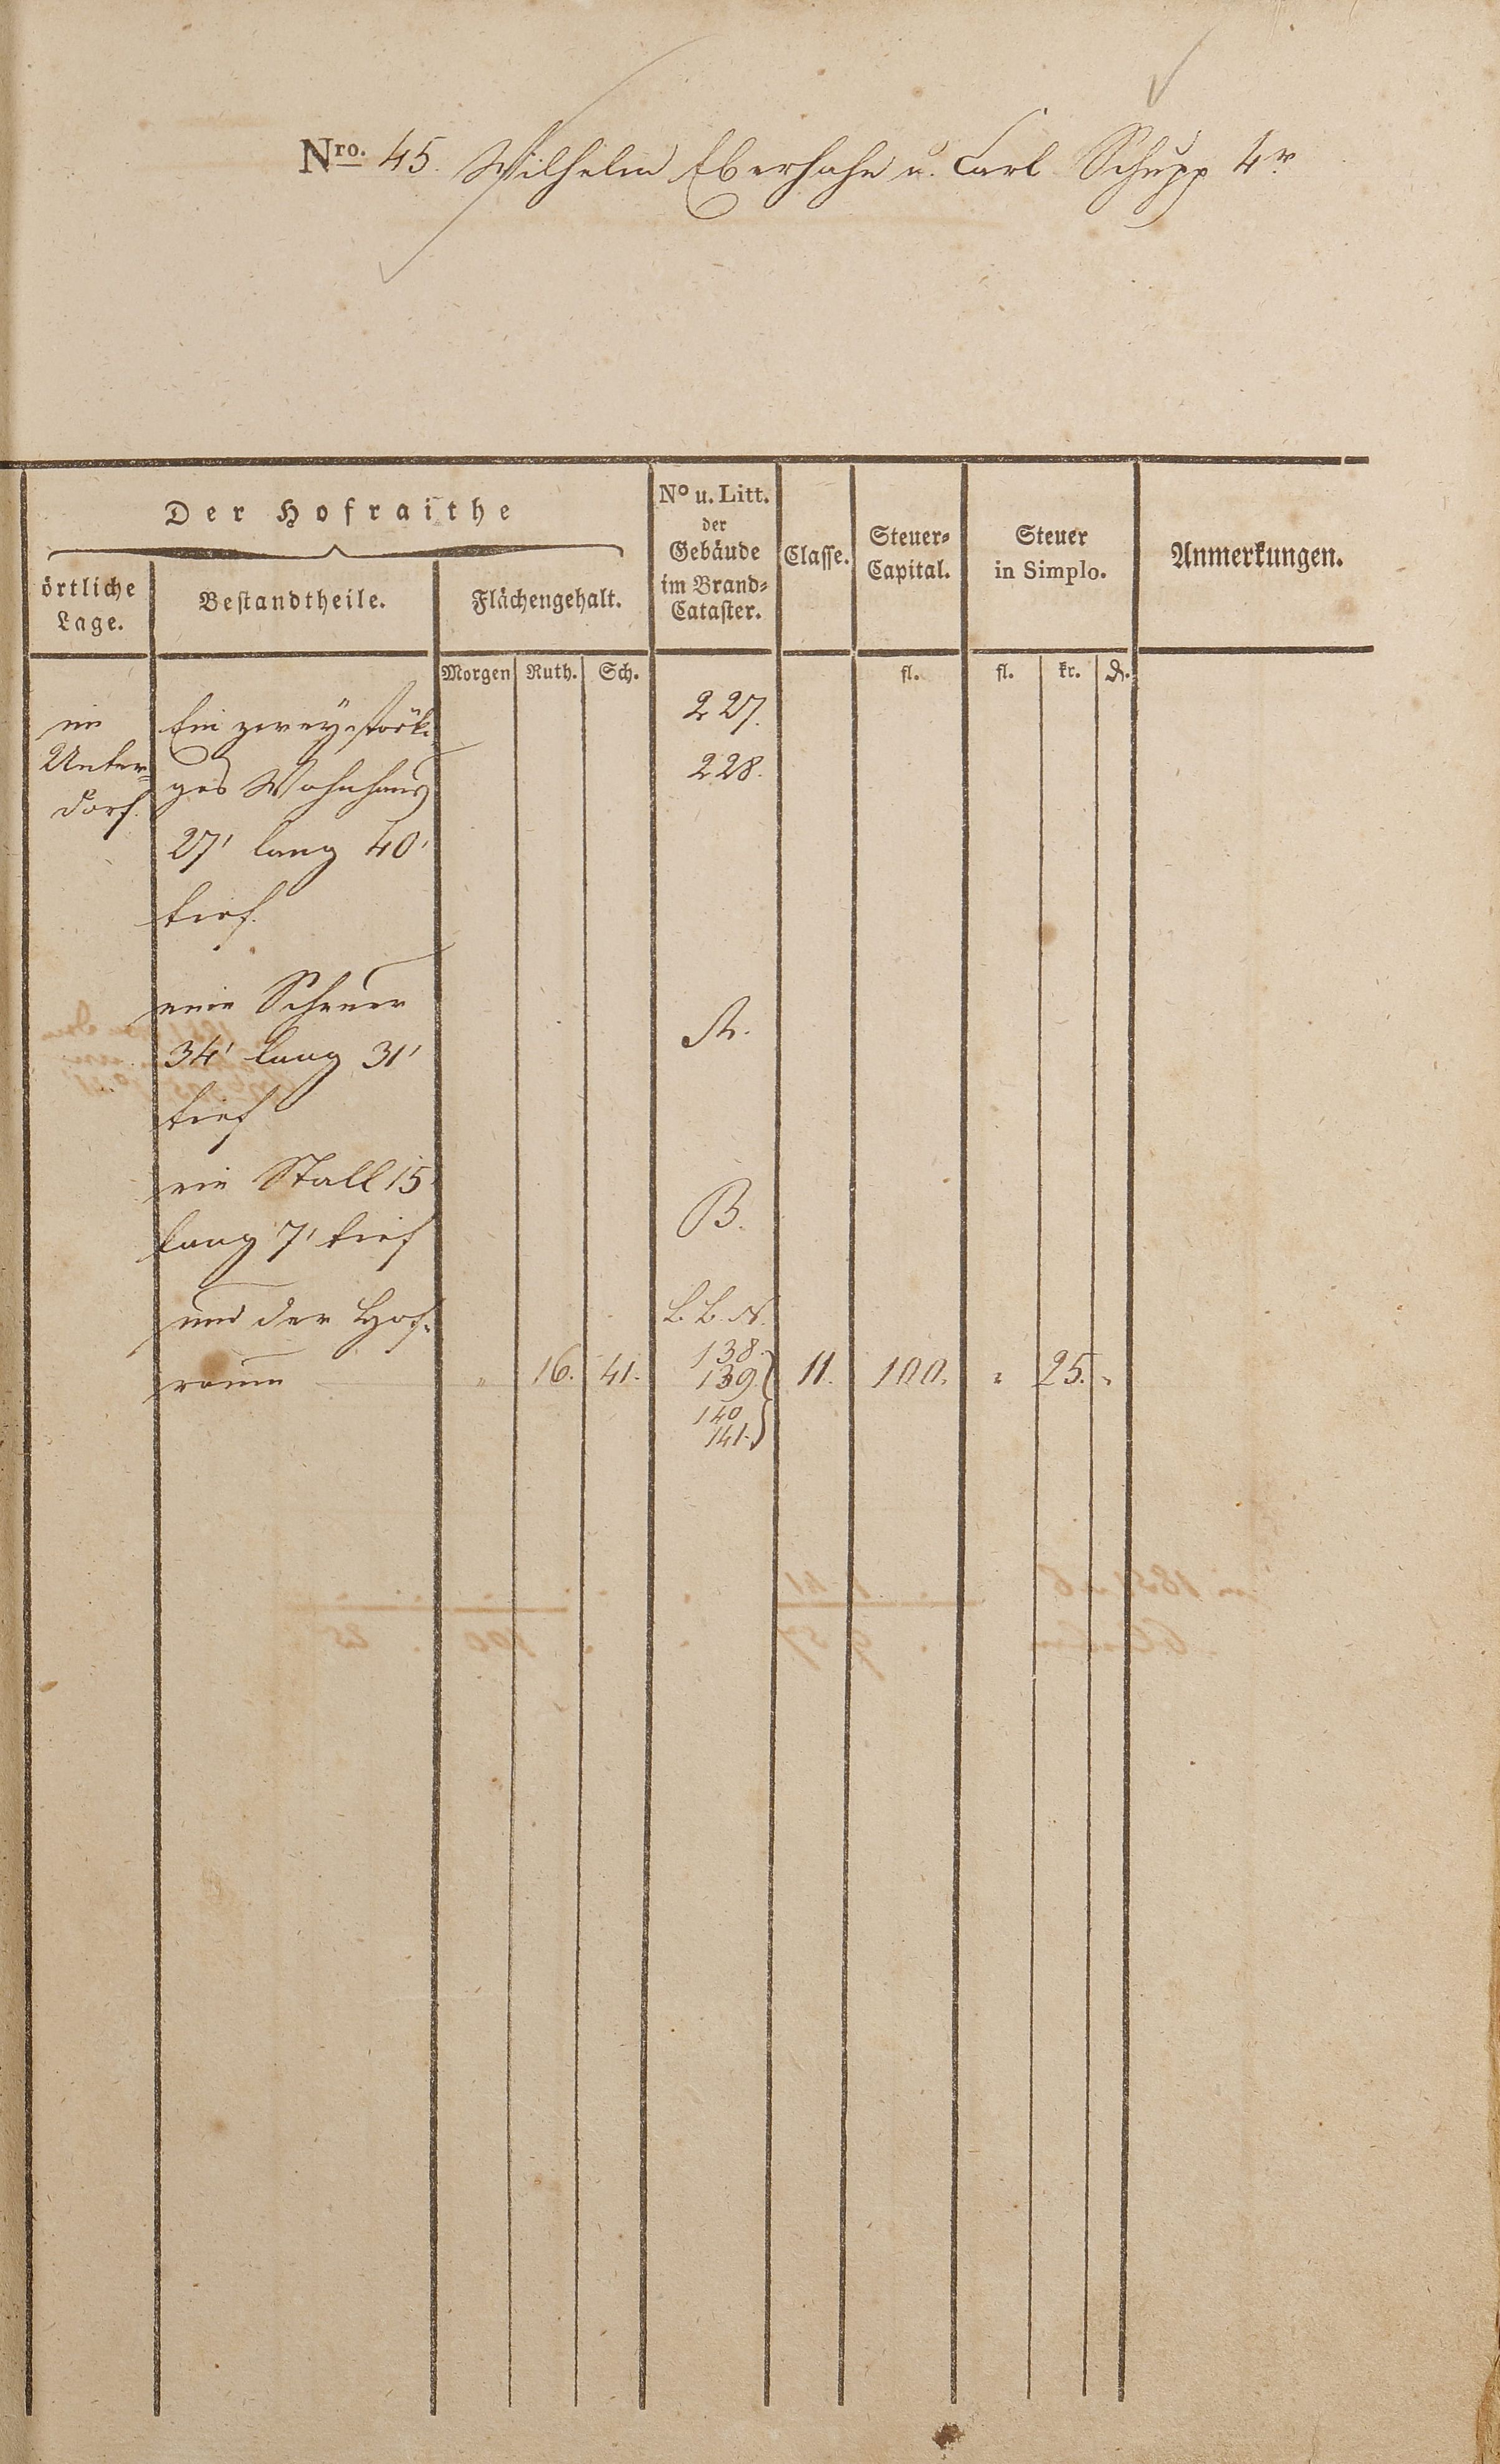 Nro. 45. Wilhelm Eberhahn u. Carl Schupp 4r
Der Hofraithe
No u. Litt.
der
Gebäude
im Brand-
Cataster.
Classe.
Steuer-
Capital.
Steuer
in Simplo.
Anmerkungen.
örtliche
Lage.
Bestandtheile.
Flächengehalt.
Morgen Ruth. Sch. fl. fl. kr. d.
im
Unter-
dorf.
Ein zweystöki-
ges Wohnhaus
27' lang 40'
tief.
227.
228.
eine Scheuer
34' lang 31'
tief
A.
ein Stall 15'
lang 7' tief
B.
und der Hof-
raum " 16. 41. 11. 100. " 25. "
L. B. N.
138.
139.
140
141.